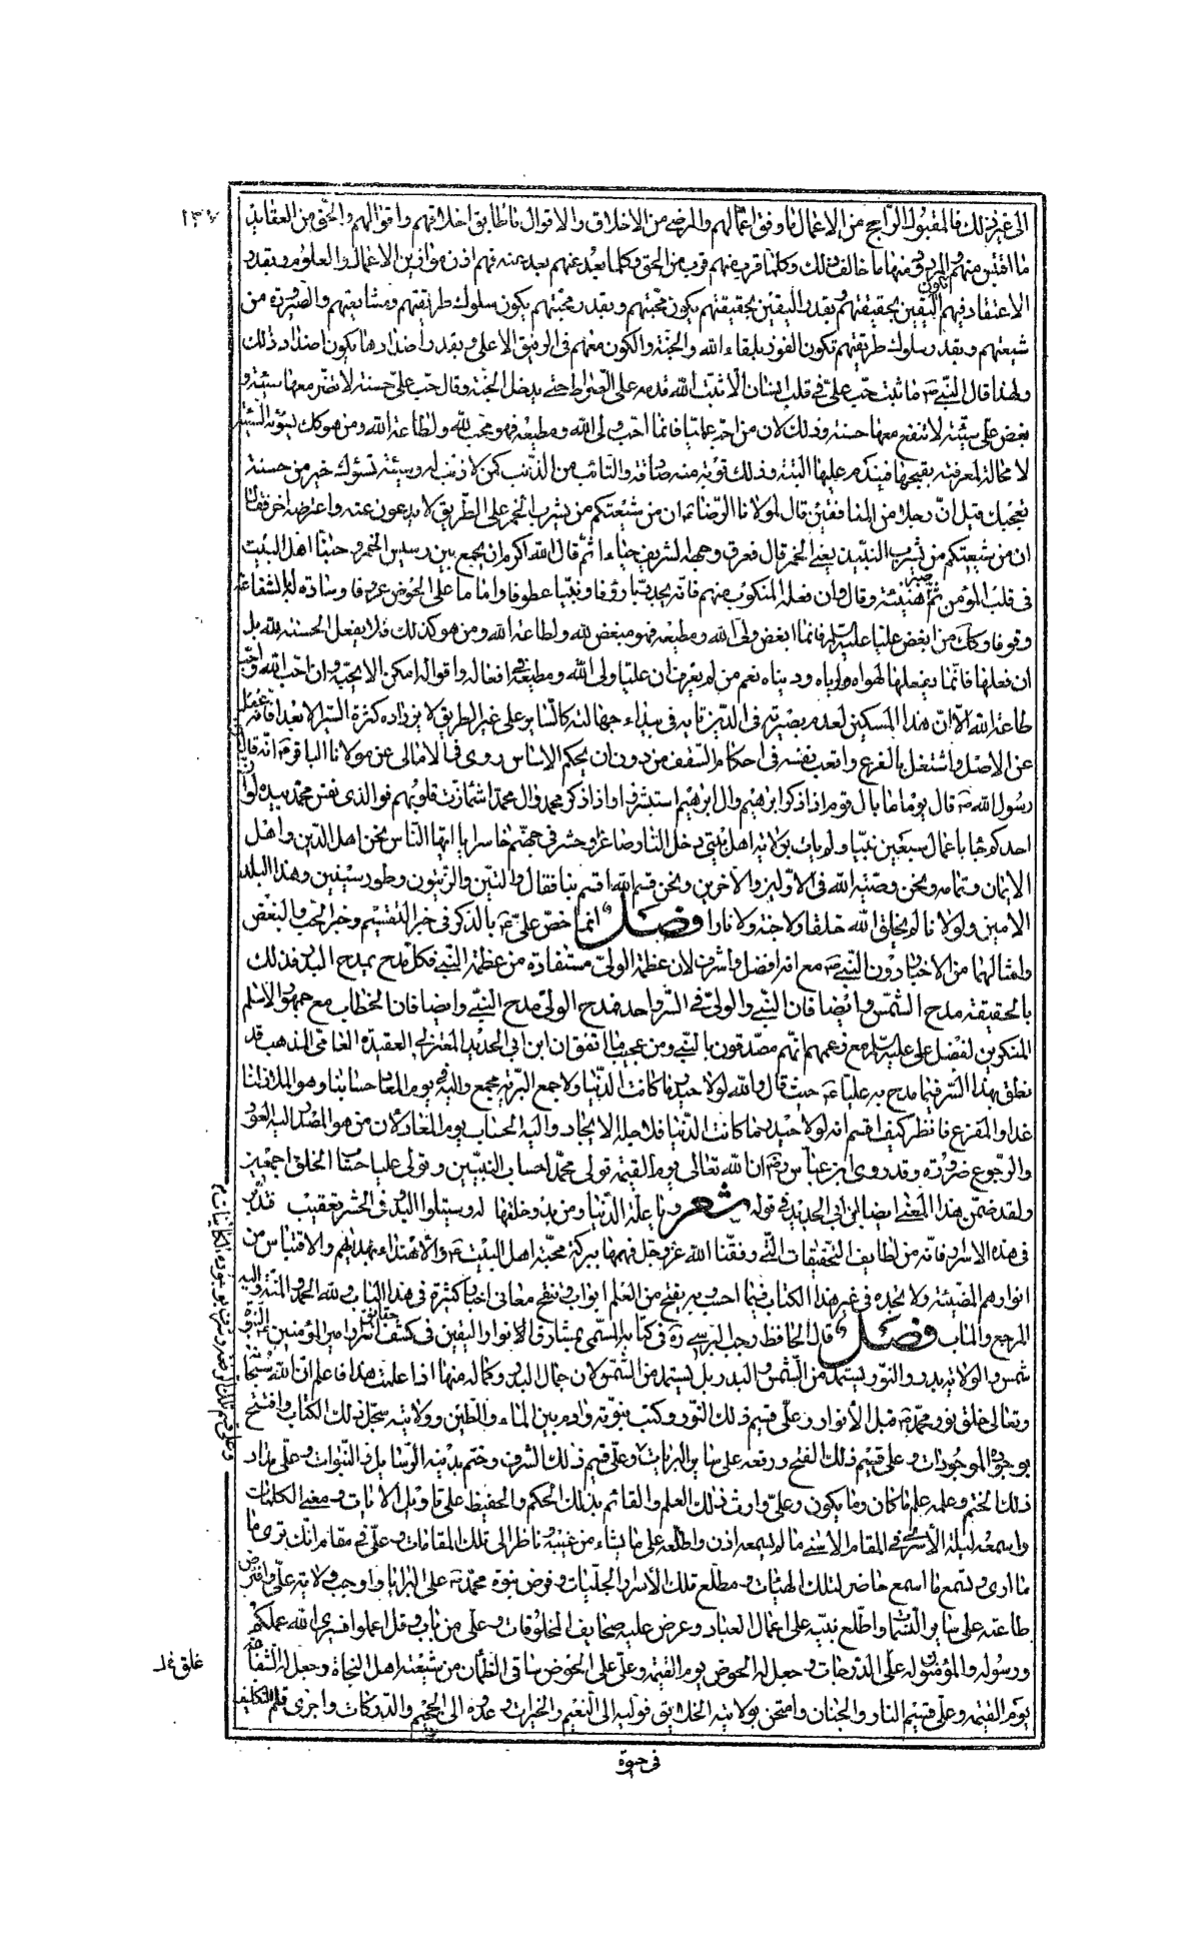 ١٣٧
الى غير ذلك فالمقبول الراجح من الاعمال ما وفق اعمالهم والمرضي من الاخلاق والاقوال ما طابق اخلاقهم واقوالهم والحق من العقايد
ما اقتبس منهم والمردود منها ما خالف ذلك وكلما قرب منهم قرب من الحق وكلما بعد عنهم بعد عنه فهم اذن موازين الاعمال والعلوم وبقدر
الاعتقاد فيهم يكون اليقين بحقيقتهم وبقدر اليقين بحقيقتهم يكون محبتهم وبقدر محبتهم يكون سلوك طريقتهم ومشايعتهم والصيرورة من
شيعتهم وبقدر سلوك طريقتهم تكون الفوز بلقاء الله والجنة والكون معهم في الرفيق الاعلى وبقدر اضدادها يكون اضداد ذلك
ولهذا قال النبي ص ما ثبت حب علي في قلب انسان الا ثبت الله قدمه على الصراط حتى يدخل الجنة وقال حب علي حسنة لا تضر معها سيئة و
بغض علي سيئة لا تنفع معها حسنة وذلك لان من احب عليا فانما احب ولي الله ومطيعه فهو محب لله ولطاعة الله ومن هو كك تسوؤه السيئة
لا محالة لمعرفته بقبحها فيندم عليها البتة وذلك توبة منه صادقة والتائب من الذنب كمن لا ذنب له وسيئة تسوئك خير من حسنة
تعجبك قيل ان رجلا من المنافقين قال لمولانا الرضا ع ان من شيعتكم من يشرب الخمر على الطريق لا يدعون عنه واعترضه اخر فقال
ان من شيعتكم من يشرب النبيذ يعني الخمر قال فعرق وجهه الشريف حياء ثم قال الله اكرم ان يجمع بين رسيس الخمر وحبنا اهل البيت
في قلب المؤمن ثم صبر هنيئة وقال وان فعلها المنكوب منهم فانه يجد ربا رؤفا ونبيا عطوفا واماما على الحوض عروفا وسادة له بالشفاعة
وقوفا وكك من ابغض عليا عليه السلم فانما ابغض ولي الله ومطيعه فهو مبغض لله ولطاعة الله ومن هو كذلك فلا يفعل الحسنة لله بل
ان فعلها فانما يفعلها لهواه ورياه ودنياه نعم من لم يعرف ان عليا ولي الله ومطيعه في افعاله واقواله امكن الا يحبه وان احب الله واحب
طاعة الله الا ان هذا المسكين لعدم بصيرته في الدين تايه في بيداء جهالته كالساير على غير الطريق لا يزداده كثرة السير الا بعدا فانه غفل
عن الاصل واشتغل بالفرع واتعب نفسه في احكام السقف من دون ان يحكم الاساس روى في الامالي عن مولانا الباقر ع انه قال قال
رسول الله ص قال يوما ما بال قوم اذا ذكر ابرهيم وال ابرهيم استبشروا واذا ذكر محمد وال محمد اشمازت قلوبهم فوالذي نفس محمد بيده لو ان
احدكم جاء باعمال سبعين نبيا ولم يات بولاية اهل بيتي دخل النار صاغرا وحشر في جهنم خاسرا يا ايها الناس نحن اهل الدين واهل
الايمان وتمامه ونحن وصية الله في الاولين والاخرين ونحن قسم الله اقسم بنا فقال والتين والزيتون وطور سينين وهذا البلد
الامين ولولانا لم يخلق الله خلقا ولا جنة ولا نارا فصل انما خص علي ع بالذكر في خبر التقسيم وخبر الحب والبغض
وامثالهما من الاخبار دون النبي ص مع انه افضل واشرف لان عظمة الولي مستفادة من عظمة النبي فكل مدح يمدح البدر فذلك
بالحقيقة مدح الشمس وايضا فان النبي والولي في السر واحد فمدح الولي مدح النبي وايضا فان الخطاب مع جمهور الاسلم
المنكرين لفضل علي عليه السلم مع زعمهم انهم مصدقون بالنبي ومن عجيب ما اتفق ان ابن ابي الحديد المعتزلي العقيدة العامي المذهب قد
نطق بهذا السر فيما مدح به عليا ع حيث قال والله لولا حيدر ما كانت الدنيا ولا جمع البرية مجمع واليه في يوم المعاد حسابنا وهو الملاذ لنا
غدا والمفزع فانظر كيف اقسم انه لولا حيدر لما كانت الدنيا فلاجله الايجاد واليه الحساب يوم المعاد لان من هو المصدر اليه العود
والرجوع ضرورة وقد روى ابن عباس رض ان الله تعالى يوم القيمة تولى محمدا حساب النبيين وتولى عليا حساب الخلق اجمعين
ولقد ضمن هذا المعنى ايضا ابن ابي الحديد في قوله شعر ويا علة الدنيا ومن بدو خلقها له وسيتلو البدو في الحشر تعقيب فتدبر
في هذه الاسرار فانه من لطايف التحقيقات التي وفقنا الله عز وجل فهمها ببركة محبة اهل البيت ع والاهتداء بهديهم والاقتباس من
انوارهم المضيئة ولا تجده في غير هذا الكتاب فيما احسب وبه يفتح من العلم ابواب وتنقح معاني اخبار كثيرة في هذا الباب ولله الحمد والمنة واليه
المرجع والمناب فصل قال الحافظ رجب البرسي ره في كتابه المسمى بمشارق الانوار اليقين في كشف حقايق اسرار امير المؤمنين ع النبوة
شمس والولاية بدر والنور يستمد من الشمس والبدر بل يستمد من الشمس لان جمال البدر وكماله منها اذا علمت هذا فاعلم ان الله سبحانه
وتعالى خلق نور محمد ص قبل الانوار وعلي قسيم ذلك النور وكتب نبوته وادم بين الماء والطين وولايته سجل ذلك الكتاب وافتتح
بوجوده الموجودات وعلي قسيم ذلك الفتح ورفعه على ساير البريات وعلي قسيم ذلك الشرف وختم بدينه الرسايل والنبوات وعلي مداد
ذلك الختم وعلمه علم ما كان وما يكون وعلي وارث ذلك العلم والقائم بذلك الحكم والحفيظ على تاويل الايات ومعنى الكلمات
واسمعه ليلة الاسرى في المقام الاسنى ما لم يسمعه اذن واطلعه على ما يشاء من غيبه وناظر الى تلك المقامات وعلي في مقام انك ترى ما
ما ارى وتسمع ما اسمع حاضر لتلك الهيئات ومطلع تلك الاسرار الجليات وفرض نبوة محمد ص على البرايا واوجب ولاية علي وافترض
طاعته على ساير النسما واطلع نبيه على اعمال العباد وعرض عليه صحايف المخلوقات وعلي من باب وقل اعملوا فسيرى الله عملكم
ورسوله والمؤمنون له على الدرجات وجعل له الحوض يوم القيمة وعلي على الحوض ساقي الظمأن من شيعته اهل النجاة وجعل له الشفاعة
يوم القيمة وعلي قسيم النار والجنان وامتحن بولايته الخلايق فوليه الى النعيم والخيرات وعدوه الى الجحيم والدركات واجرى قلم التكليف
في حبوة